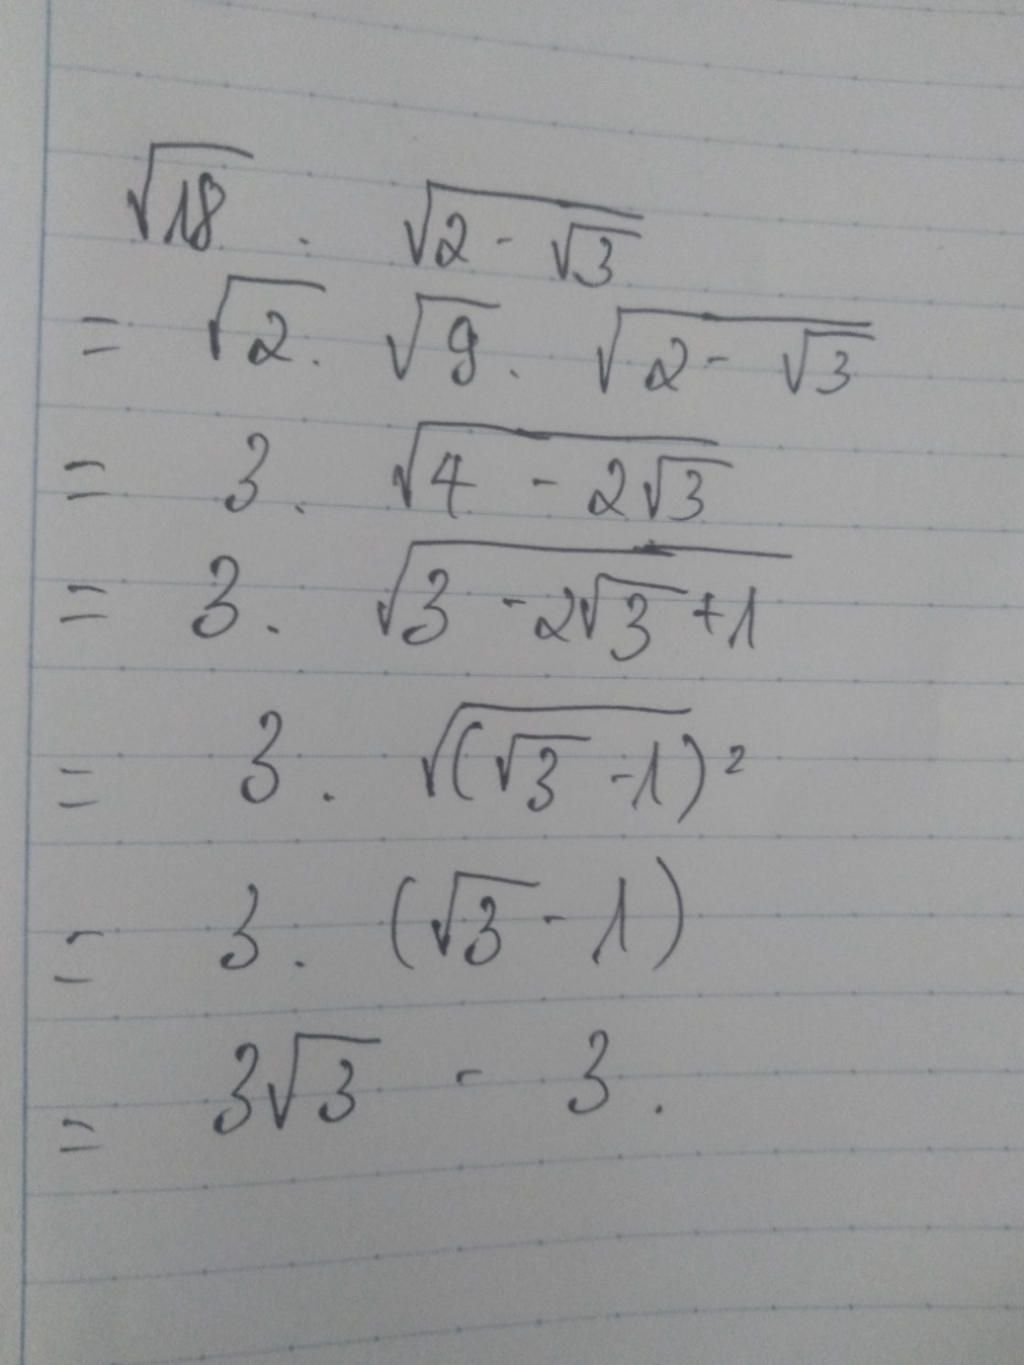 √18 . √(2 - √3)
= √2 . √9 . √(2 - √3)
= 3 . √(4 - 2√3)
= 3 . √(3 - 2√3 + 1)
= 3 . √(√3 - 1)²
= 3 . (√3 - 1)
= 3√3 - 3 .